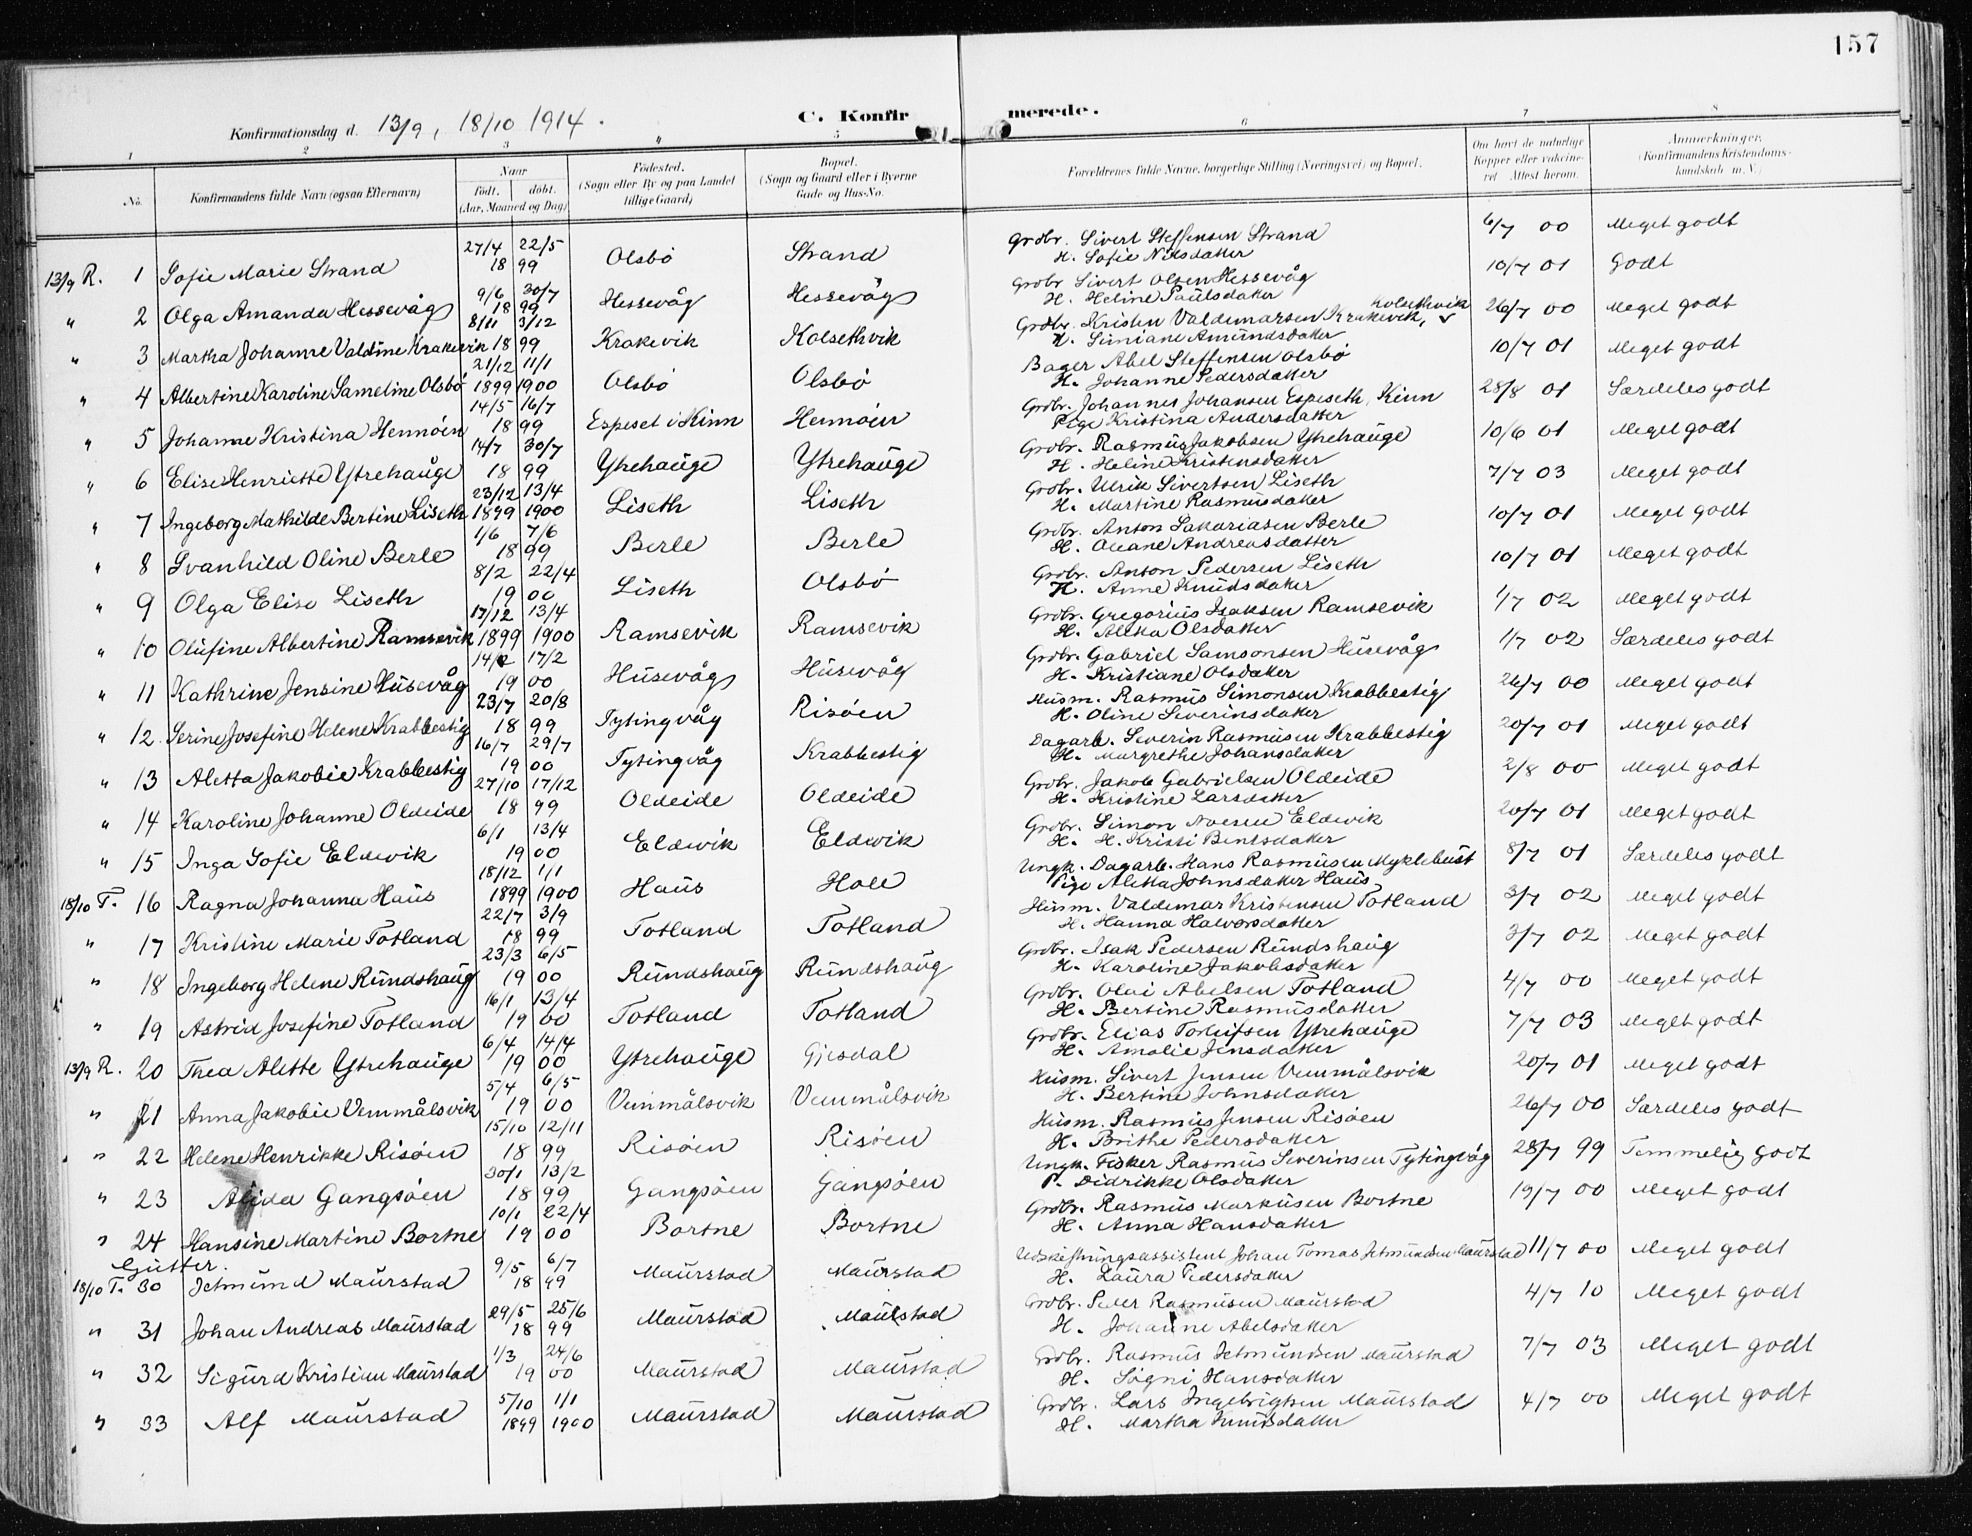 157
Konfirmationsdag d. 13/9, 18/10 1914.
C. Konfirmerede.
1 2 3 4 5 6 7 8
No. Konfirmandens fulde Navn (ogsaa Efternavn) Naar født. døbt. (Aar, Maaned og Dag) Fødested. (Sogn eller By og paa Landet tillige Gaard) Bopæl. (Sogn og Gaard eller i Byerne Gade og Hus-No. Forældrenes fulde Navne, borgerlige Stilling (Næringsvei) og Bopæl. Om havt de naturlige Kopper eller vaccineret. Attest herom. Anmerkninger. (Konfirmandens Kristendomskundskab m. V.)
13/9 R. 1 Sofie Marie Strand 27/4 1899 22/5 Olsbö Strand Grdbr. Sivert Steffensen Strand H. Sofie Nilsdatter 6/7 00 Meget godt
" 2 Olga Amanda Hessevåg 9/6 30/7 1899 Hessevåg Hessevåg Grdbr. Sivert Olsen Hessevåg H. Heline Paulsdatter 10/7 01 Godt
" 3 Martha Johanne Valdine Krakevik 8/11 3/12 1899 Krakevik Kolsethvik Grdbr. Kristen Valdemarsen Krakevik, Kolsethvik H. Simiane Amundsdatter 26/7 00 Meget godt
" 4 Albertine Karoline Sameline Olsbö 21/12 1899 11/1 1900 Olsbö Olsbö Bager Abel Steffensen Olsbö H. Johanne Pedersdatter 10/7 01 Meget godt
" 5 Johanne Kristina Hennöen 14/5 16/7 1899 Espeset i Kinn Hennöen Grdbr. Johannes Johansen Espeseth, Kinn Pige Kristina Andersdatter 28/8 01 Særdeles godt
" 6 Elise Henriette Ytrehauge 14/7 30/7 1899 Ytrehauge Ytrehauge Grdbr. Rasmus Jakobsen Ytrehauge H. Heline Kristensdatter 10/6 01 Meget godt
" 7 Ingeborg Mathilde Bertine Liseth 23/12 1899 13/4 1900 Liseth Liseth Grdbr. Ulrik Sivertsen Liseth H. Martine Rasmusdatter 7/7 03 Meget godt
" 8 Svanhild Oline Berle 1/6 7/6 1899 Berle Berle Grdbr. Anton Sakariasen Berle H. Oleane Andreasdatter 10/7 01 Meget godt
" 9 Olga Elise Liseth 8/2 22/4 1900 Liseth Olsbö Grdbr. Anton Pedersen Liseth H. Anne Knudsdatter 10/7 01 Meget godt
" 10 Olufine Albertine Ramsevik 17/12 1899 13/4 1900 Ramsevik Ramsevik Grdbr. Gregorius Isaksen Ramsevik H. Aletta Olsdatter 1/7 02 Meget godt
" 11 Kathrine Jensine Husevåg 14/2 17/2 1900 Husevåg Husevåg Grdbr. Gabriel Samsonsen Husevåg H. Kristiane Olsdatter 1/7 02 Særdeles godt
" 12 Serine Josefine Helene Krabbestig 23/7 20/8 1899 Tytingvåg Risöen Husm. Rasmus Simonsen Krabbestig H. Oline Severinsdatter 26/7 00 Meget godt
" 13 Aletta Jakobie Krabbestig 16/7 29/7 1900 Tytingvåg Krabbestig Dagarb. Severin Rasmusen Krabbestig H. Margrethe Johansdatter 20/7 01 Meget godt
" 14 Karoline Johanne Oldeide 27/10 17/12 1899 Oldeide Oldeide Grdbr. Jakob Gabrielsen Oldeide H. Kristine Larsdatter 2/8 00 Meget godt
" 15 Inga Sofie Eldevik 6/1 13/4 1900 Eldevik Eldevik Grdbr. Simon Noesen Eldevik H. H. Kristi Bentsdatter 20/7 01 Meget godt
18/10 T. 16 Ragna Johanna Haus 18/12 1899 1/1 1900 Haus Hole Ungk. Dagarb. Hans Rasmusen Myklebust Pige Aletta Johnsdatter Haus 8/7 01 Særdeles godt
" 17 Kristine Marie Totland 22/7 3/9 1899 Totland Totland Husm. Valdemar Kristensen Totland H. Hanna Halvorsdatter 3/7 02 Meget godt
" 18 Ingeborg Helene Rundshaug 23/3 6/5 1900 Rundshaug Rundshaug Grdbr. Isak Pedersen Rundshaug H. Karoline Jakobsdatter 3/7 02 Meget godt
" 19 Astrid Josefine Totland 16/1 13/4 1900 Totland Totland Grdbr. Olai Abelsen Totland H. Bertine Rasmusdatter 4/7 00 Meget godt
13/9 R. 20 Thea Alette Ytrehauge 6/4 14/4 1900 Ytrehauge Gjesdal Grdbr. Elias Tollefsen Ytrehauge H. Amalie Jensdatter 7/7 03 Meget godt
" 21 Anna Jakobie Vemmålsvik 5/4 6/5 1900 Vemmålsvik Vemmålsvik Husm. Sivert Jensen Vemmålsvik H. Bertine Johnsdatter 20/7 01 Meget godt
" 22 Helene Henrikke Risöen 15/10 12/11 1899 Risöen Risöen Husm. Rasmus Jensen Risöen H. Brithe Pedersdatter 26/7 00 Særdeles godt
" 23 Alida Gangsöen 30/1 13/2 1899 Gangsöen Gangsöen Ungk. Fisker Rasmus Severinsen Tytingvåg P. Didrikke Olsdatter 28/7 99 Temmelig godt
" 24 Hansine Martine Bortne 10/1 22/4 1900 Bortne Bortne Grdbr. Rasmus Markusen Bortne H. Anna Hansdatter 19/7 00 Meget godt
Gutter.
18/10 T. 30 Jetmund Maurstad 9/5 6/7 1899 Maurstad Maurstad Udskiftningsassistent Johan Tomas Jetmundsen Maurstad H. Laura Pedersdatter 11/7 00 Meget godt
" 31 Johan Andreas Maurstad 29/5 25/6 1899 Maurstad Maurstad Grdbr. Peder Rasmusen Maurstad H. Johanne Abelsdatter 4/7 10 Meget godt
" 32 Sigurd Kristian Maurstad 1/3 24/6 1900 Maurstad Maurstad Grdbr. Rasmus Jetmundsen Maurstad H. Sögni Hansdatter 7/7 03 Meget godt
" 33 Alf Maurstad 5/10 1899 1/1 1900 Maurstad Maurstad Grdbr. Lars Ingebrigtsen Maurstad H. Martha Knudsdatter 4/7 00 Meget godt